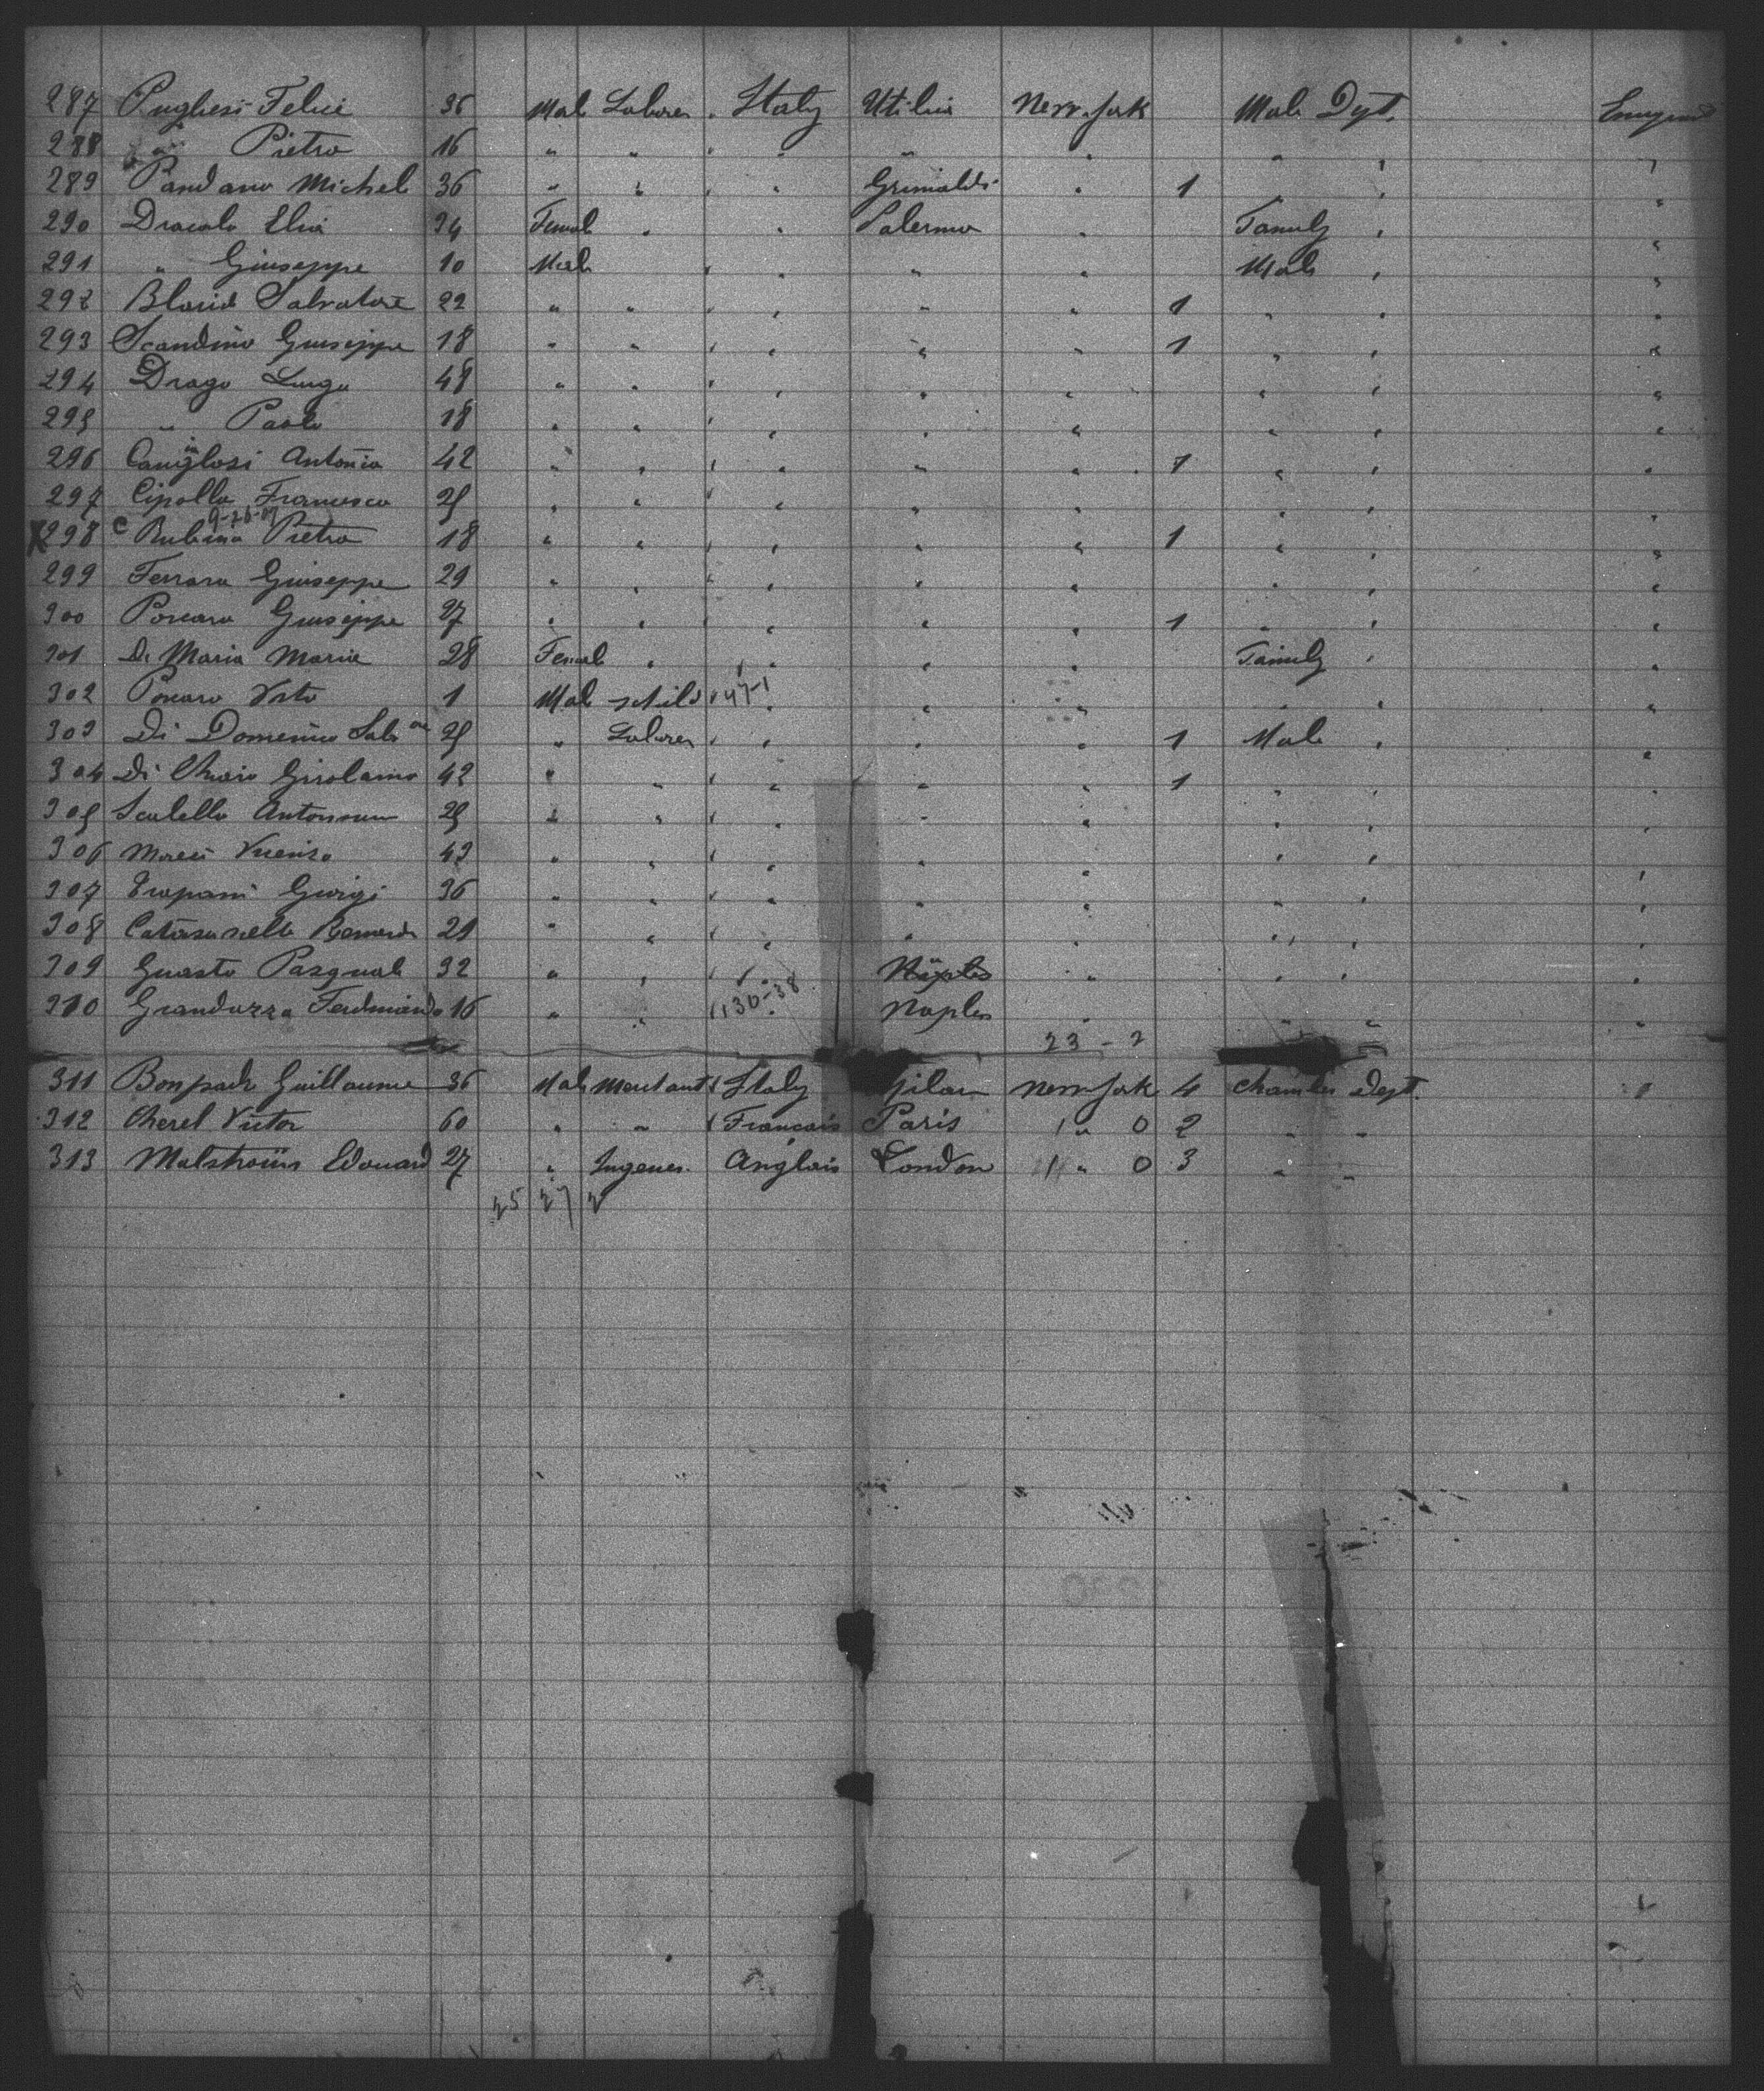 287 Pugliesi Felici 36 Mal Laborer Italy Utilia New-York Male Dept. Emigrant
288 " Pietro 16 " " " " " " "
289 Pandano Michele 36 " " " Grimaldi " 1 " "
290 Dracolo Elia 34 Femal " " Palermo " Family " "
291 " Giuseppe 10 Male " " " Male " "
292 Salvatore 22 " " " " " 1 " " "
293 Scandino Giuseppe 18 " " " " " 1 " " "
294 Drago Luigi 48 " " " " " " " "
295 " Paolo 18 " " " " " " " "
296 Caniglosi Antonio 42 " " " " " 1 " " "
297 Cipolla Francesco 25 " " " " " " " "
9-26-07
X 298 c Rubino Pietro 18 " " " " " 1 " " "
299 Ferrara Giuseppe 29 " " " " " " " "
300 Porcaro Giuseppe 37 " " " " " 1 " " "
301 Di Maria Maria 28 Femal " " " " Family " "
302 Porcaro Vito 1 Mal schild " " " " " "
303 Di Domenico Salv 25 " Laborer " " " 1 Male " "
304 Di Chiaro Girolamo 42 " " " " " 1 " " "
305 Scalello 25 " " " " " " " "
306 43 " " " " " " " "
307 Trapani Giorgi 36 " " " " " " " "
308 21 " " " " " " " "
309 Guasto Pasquale 32 " " " Naples " " " "
310 Granduzza Ferdinando 16 " " 130-38 Naples " " " "
23 - 2
311 Guillaume 36 Male Merchant Italy New-York 4 Chamber Dept.
312 Cherel Victor 60 " " Français Paris 1 " 0 2 " "
313 Edouard 27 " Ingener. Anglais London 1 " 0 3 " "
25 27 2